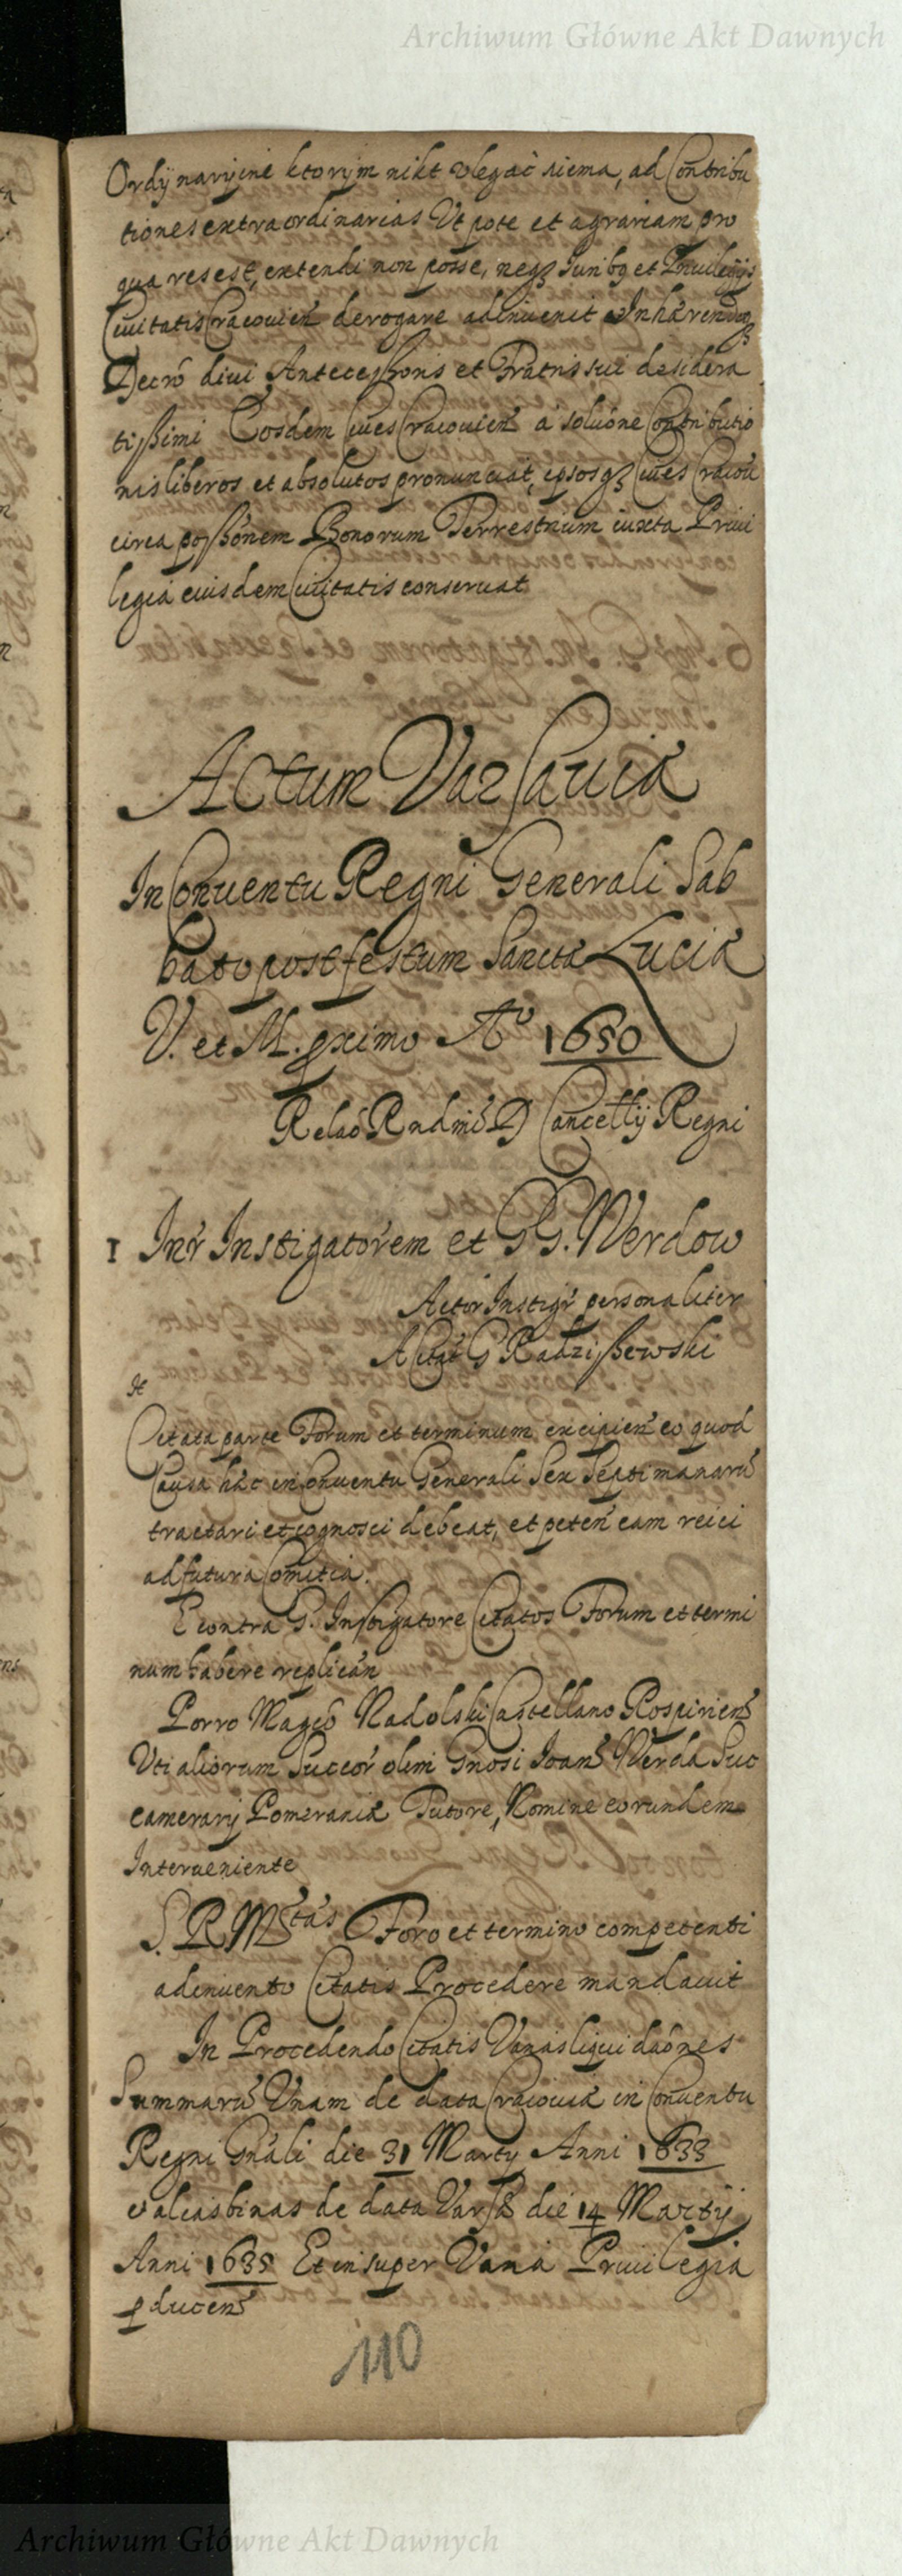 Archiwum Główne Akt Dawnych
Ordÿnaryjne ktorym nikt ulegać niema, ad Contribu
tiones extraordinarias Ut pote et agrariam pro
qua res est, extendi non posse, neqz Juribq et Privilegÿs
Civitatis Cracovien derogare adinvenit Inhærendoqz
Decró divi Antecessoris et Fratris sui desidera
tissimi Eosdem Cives Cracovien á solúóne Contributio
nis liberos et absolutos pronunciat, ipsosqz Cives Cracov
circa possóonem Bonorum Terrestrium iuxta Privi
legia eiusdem Civitatis conservat
Actum Varsaviæ
In Conventu Regni Generali Sab
bato post festum Sanctæ Luciæ
V. et M. pximo Aº 1650
Relaó Rndmi D Cancellÿ Regni
1 Intr Instigatorem et GG. Werdow
Actór Instigr personaliter
A Citat G Radziszewski
It
Citata parte Forum et terminum excipien eo quod
Causa hæc in Conventu Generali Sex Septimanarú
tractari et cognosci debeat, et peten eam reici
ad futura Comitia.
E contra G. Instigatore Citatos Forum et termi
num habere replicán
Porro Mageo Nadolski Castellano Rospirien
Uti aliorum Succór olim Gnosi Joan Werda Suc
camerarÿ Pomeraniæ Tutore, Nomine eorundem
Interveniente
S. R. Mtás Foro et termino competenti
adinvento Citatis Procedere mandavit
In Procedendo Citatis Varias liquidaónes
Summarú Unam de data Cracoviæ in Conventu
Regni Gnáli die 31 Marty Anni 1633
alias binas de data Varsæ die 14 Martÿ
Anni 1635 Et insuper Varia Privilegia
pducen
110
Archiwum Główne Akt Dawnych